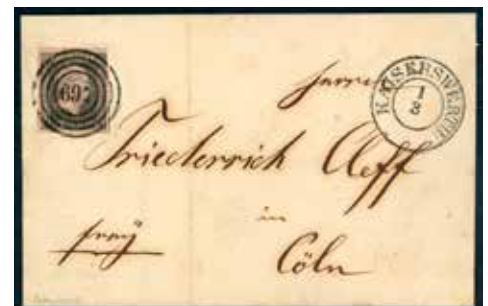 697
Herrn
KAISERSWERTH
1
3
Friederrich Aeff
in
Cöln
frey